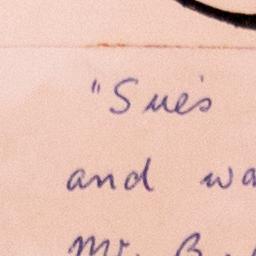 "Sue's
and wa
Mr. B